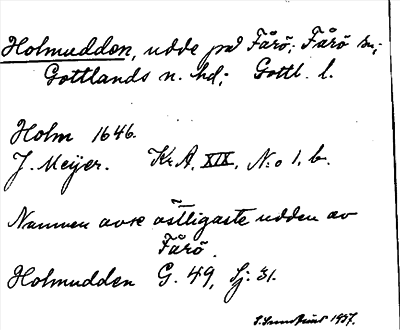 Holmudden, udde på Fårö; Fårö sn;
Gottlands n. hd; Gottl. l.
Holm 1646.
J. Meÿer. Kr.A. XIX, N:o 1, b.
Namnen avse östligaste udden av
Fårö.
Holmudden G. 49, Sj: 31.
1937.